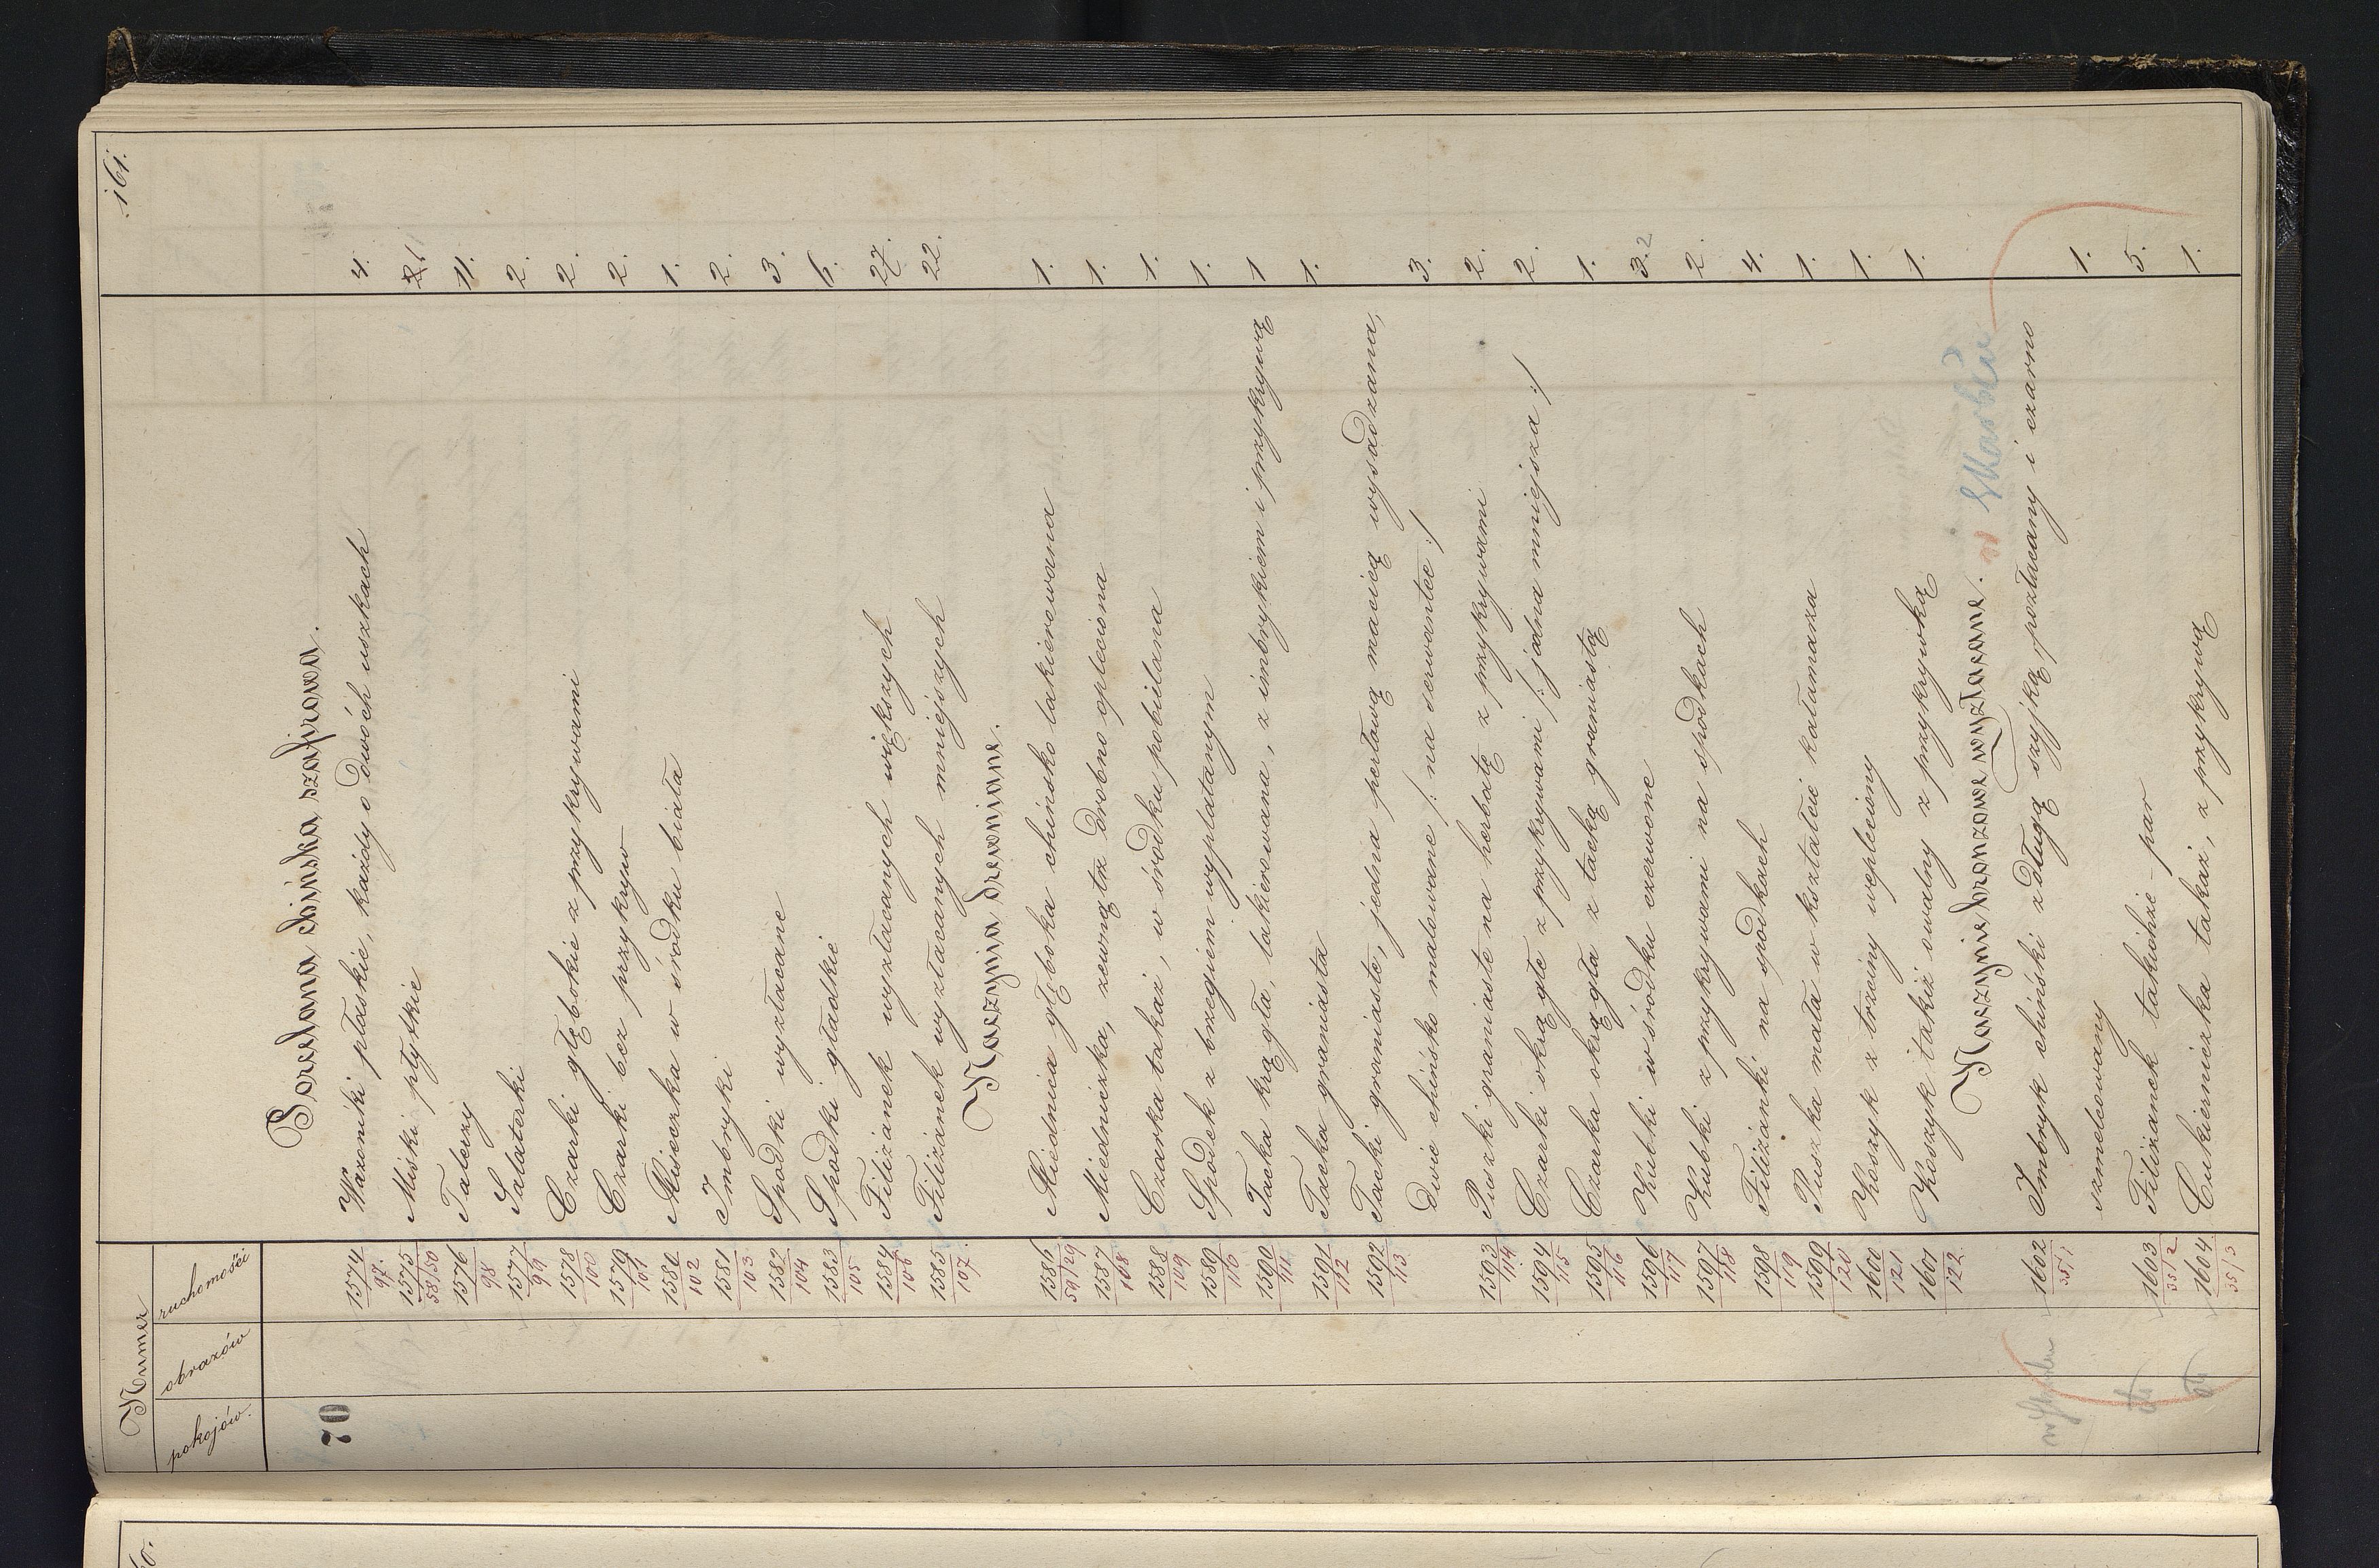 161.
Numer
pokojów. obrazów ruchomości
70
Porcelana chińska szafirowa.
1574 97. Wazoniki płaskie, każdy o dwóch uszkach 4.
1575 58/50 Miski płytkie 21
1576 98 Talerzy 11.
1577 99 Salaterki 2.
1578 100 Czarki głębokie z przykrywami 2.
1579 101 Czarki bez przykryw 2.
1580 102 Miseczka w środku biała 1.
1581 103 Imbryki 2.
1582 104 Spodki wyzłacane 3.
1583 105 Spodki gładkie 6.
1584 106 Filiżanek wyzłacanych większych 27.
1585 107. Filiżanek wyzłacanych mniejszych 22.
Naczynia drewniane.
1586 59/29 Miednica głęboka chińsko lakierowana 1.
1587 108 Miedniczka, zewnątrz drobno opleciona 1.
1588 109 Czarka takaż, w środku pobielana 1.
1589 110 Spodek z brzegiem wyplatanym 1.
1590 111 Tacka krągła, lakierowana, z imbrykiem i przykrywą 1
1591 112 Tacka graniasta 1.
1592 113 Tacki graniaste, jedna perłową macicą wysadzana,
dwie chińsko malowane /: na serwantce :/ 3.
1593 114 Puszki graniaste na herbatę z przykrywami 2.
1594 115 Czarki okrągłe z przykrywami /: jedna mniejsza :/ 2.
1595 116 Czarka okrągła z tacką graniastą 1.
1596 117 Kubki w środku czerwone 3. 2
1597 118 Kubki z przykrywami na spodkach 2.
1598 119 Filiżanki na spodkach 4.
1599 120 Puszka mała w kształcie kałamarza 1.
1600 121 Koszyk z trzciny wepleciony 1.
1601 122 Koszyk takiż owalny z przykrywką 1.
Naczynie bronzowe wyzłacane. w Skarbcu
1602 35/1 Imbryk chiński z długą szyjką, pozłacany i czarno
szmelcowany 1.
1603 35/2 Filiżanek takichże - par 5.
1604 35/3 Cukierniczka takaż, z przykrywą 1.